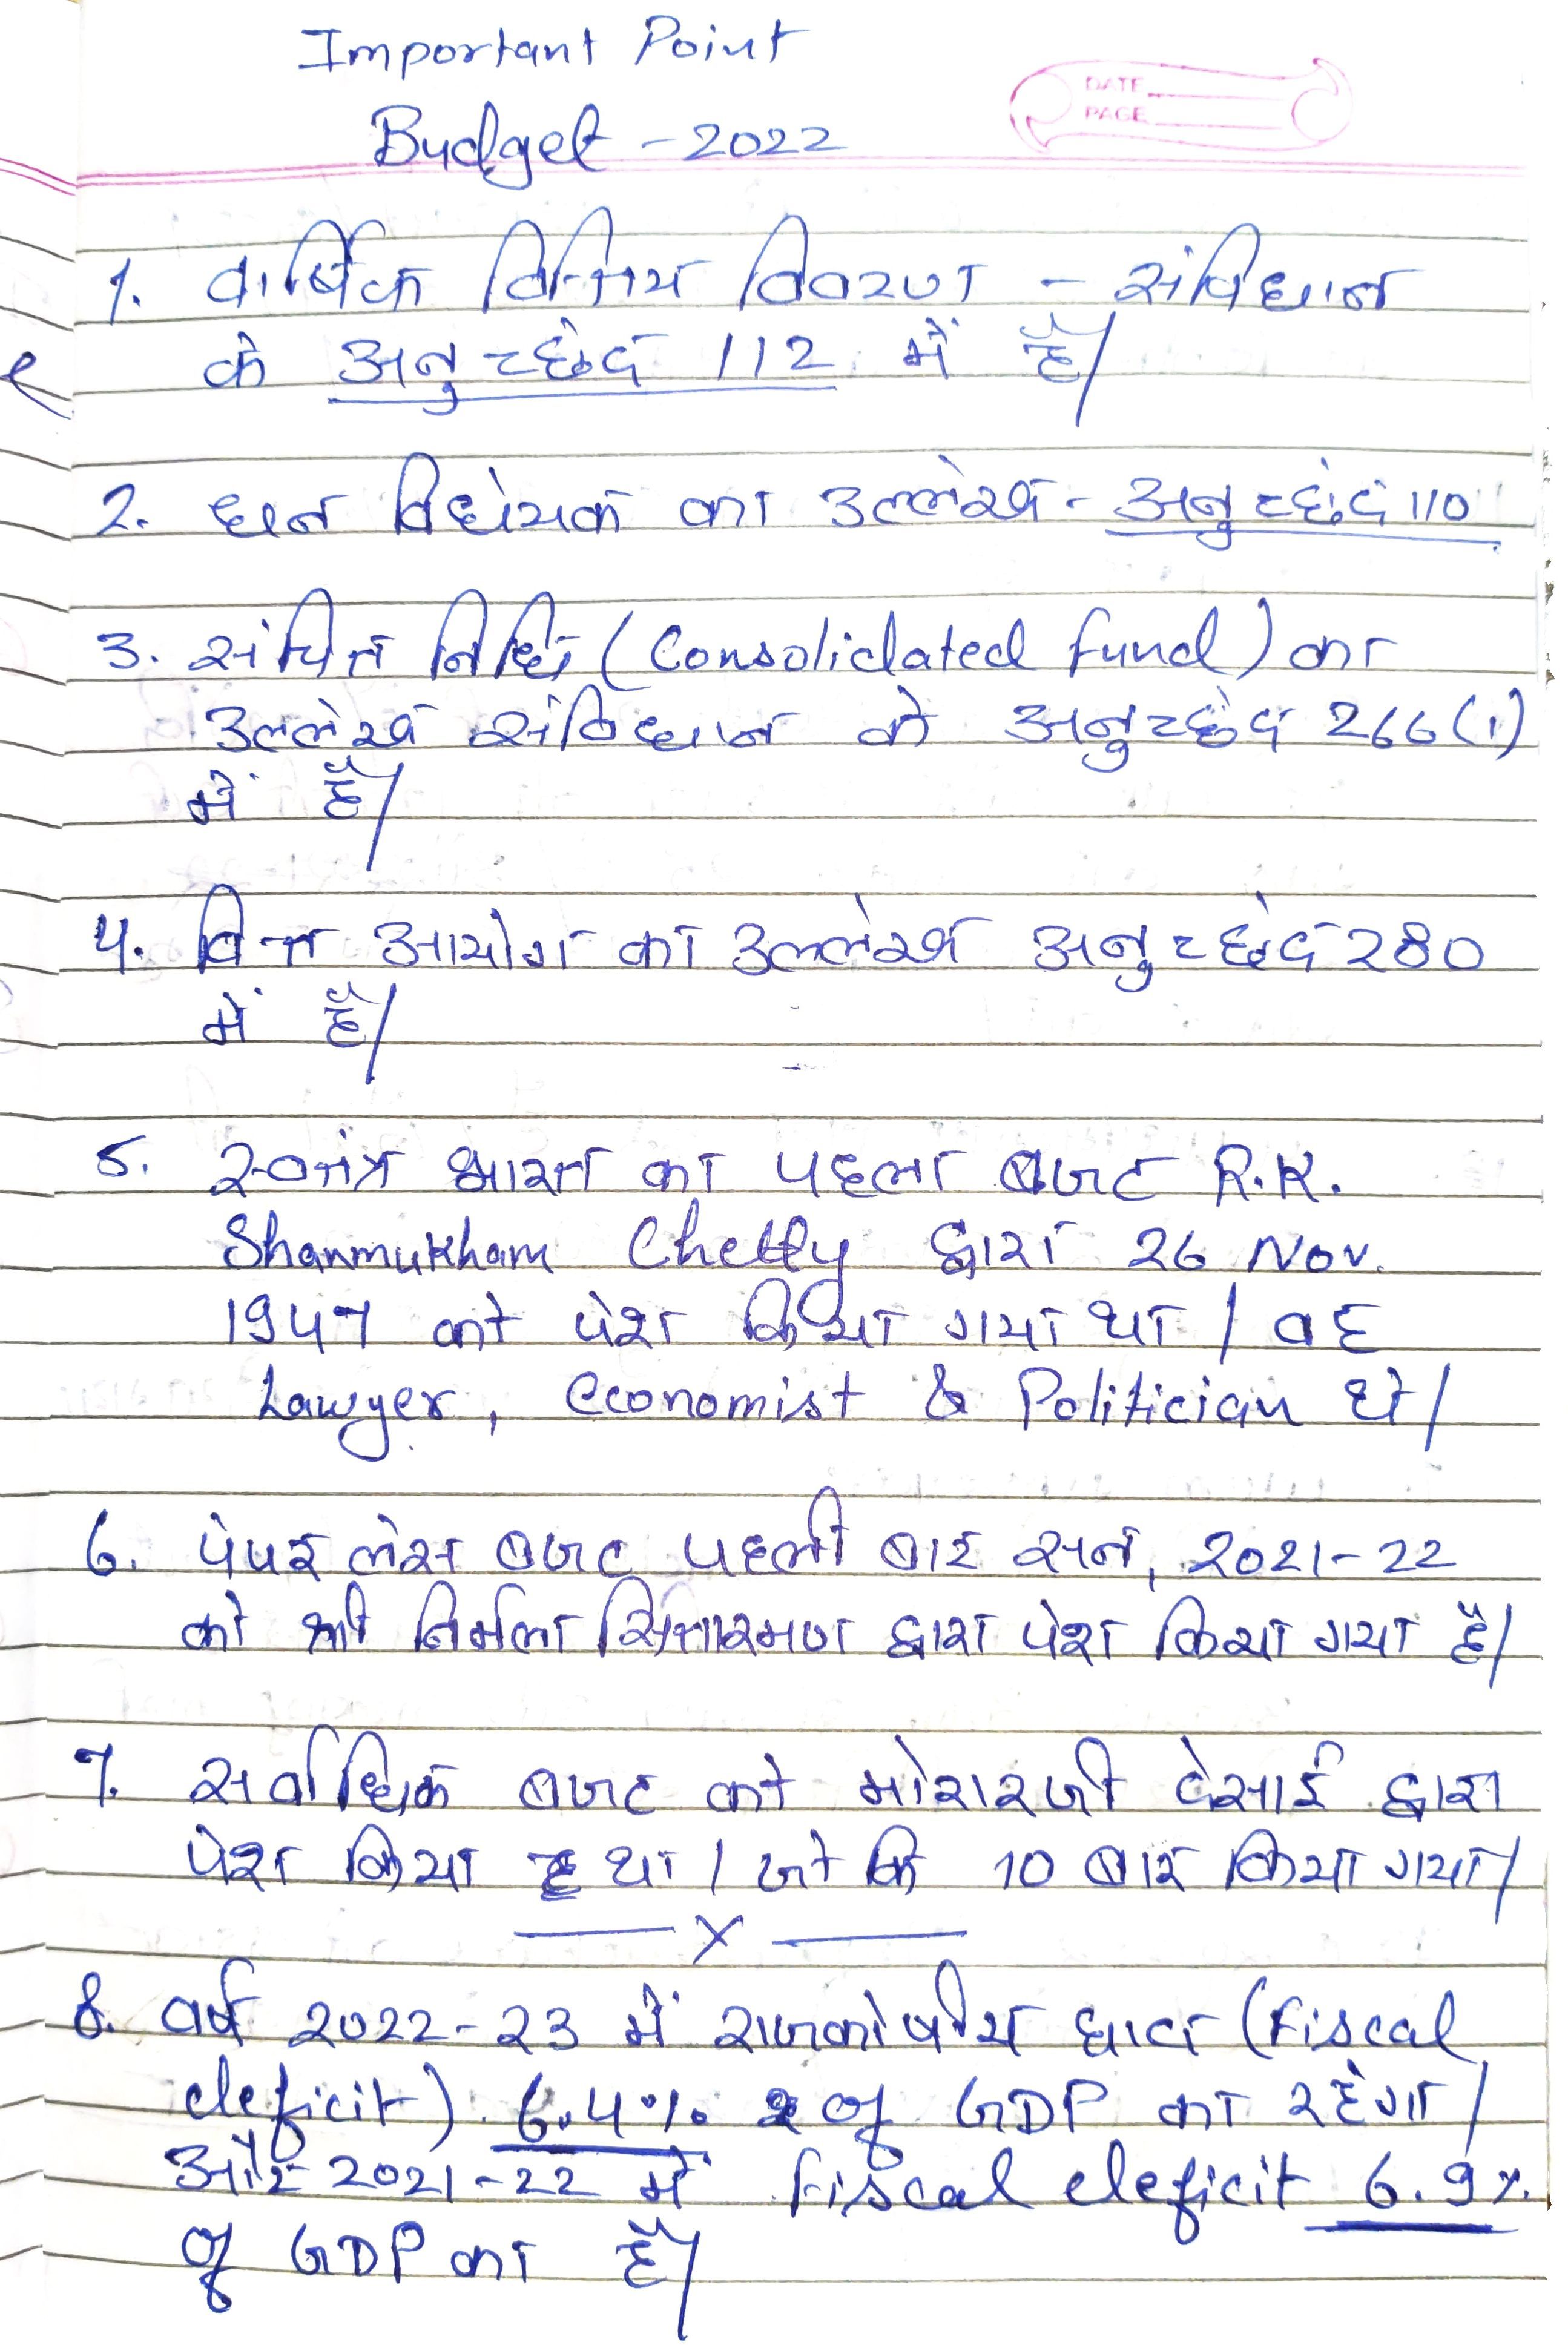 Important Point
DATE
PAGE
Budget - 2022
1. वार्षिक वित्तिय विवरण - संविधान
के अनुच्छेद 112 में है।
2. धन विधेयक का उल्लेख - अनुच्छेद 110
3. संचित निधि (Consolidated fund) का
उल्लेख संविधान के अनुच्छेद 266(1)
में है।
4. वित्त आयोग का उल्लेख अनुच्छेद 280
में है।
5. स्वतंत्र भारत का पहला बजट R.K.
Shanmukham Chetty द्वारा 26 Nov.
1947 को पेश किया गया था। वह
Lawyer, economist & Politician थे।
6. पेपर लेस बजट पहली बार सन, 2021-22
को श्री निर्मला सितारमण द्वारा पेश किया गया है।
7. सर्वाधिक बजट को मोरारजी देसाई द्वारा
पेश किया था। जो कि 10 बार किया गया।
X
8. वर्ष 2022-23 में राजकोषीय घाटा (Fiscal
deficit) 6.4% of GDP का रहेगा।
और 2021-22 में Fiscal deficit 6.9%
of GDP का है।